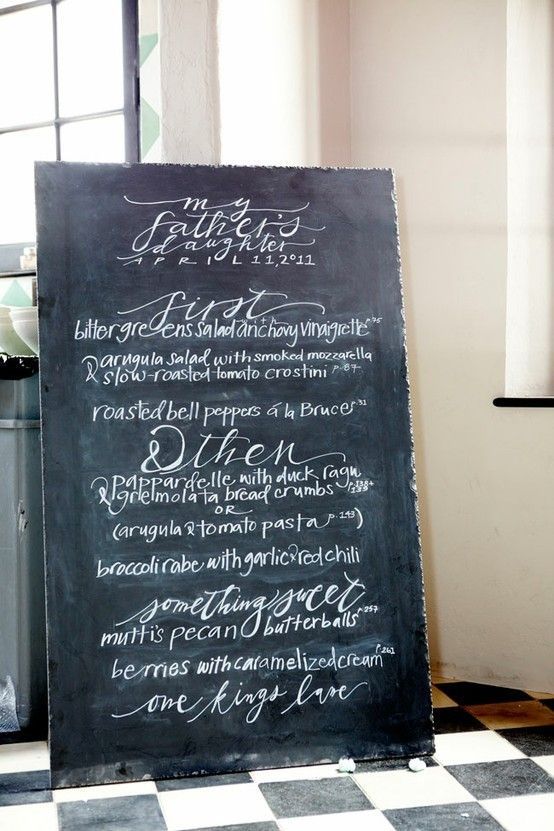 my
father's
daughter
APRIL 11, 2011
first
bitter greens salad with anchovy vinaigrette p.75
& arugula salad with smoked mozzarella
slow-roasted tomato crostini p.87
roasted bell peppers á la Bruce p.31
& then
pappardelle with duck ragu
& gremolata bread crumbs p.138+
139
OR
(arugula & tomato pasta p.143)
broccoli rabe with garlic & red chili
something sweet
mutti's pecan butterballs p.257
berries with caramelized cream p.261
one kings lane